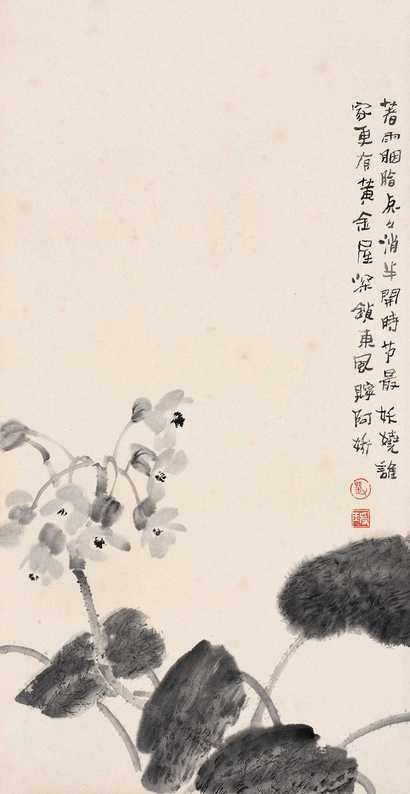 著雨胭脂点々消半開時节最妖嬈誰
家更有黄金屋深鎖東風貯阿娇